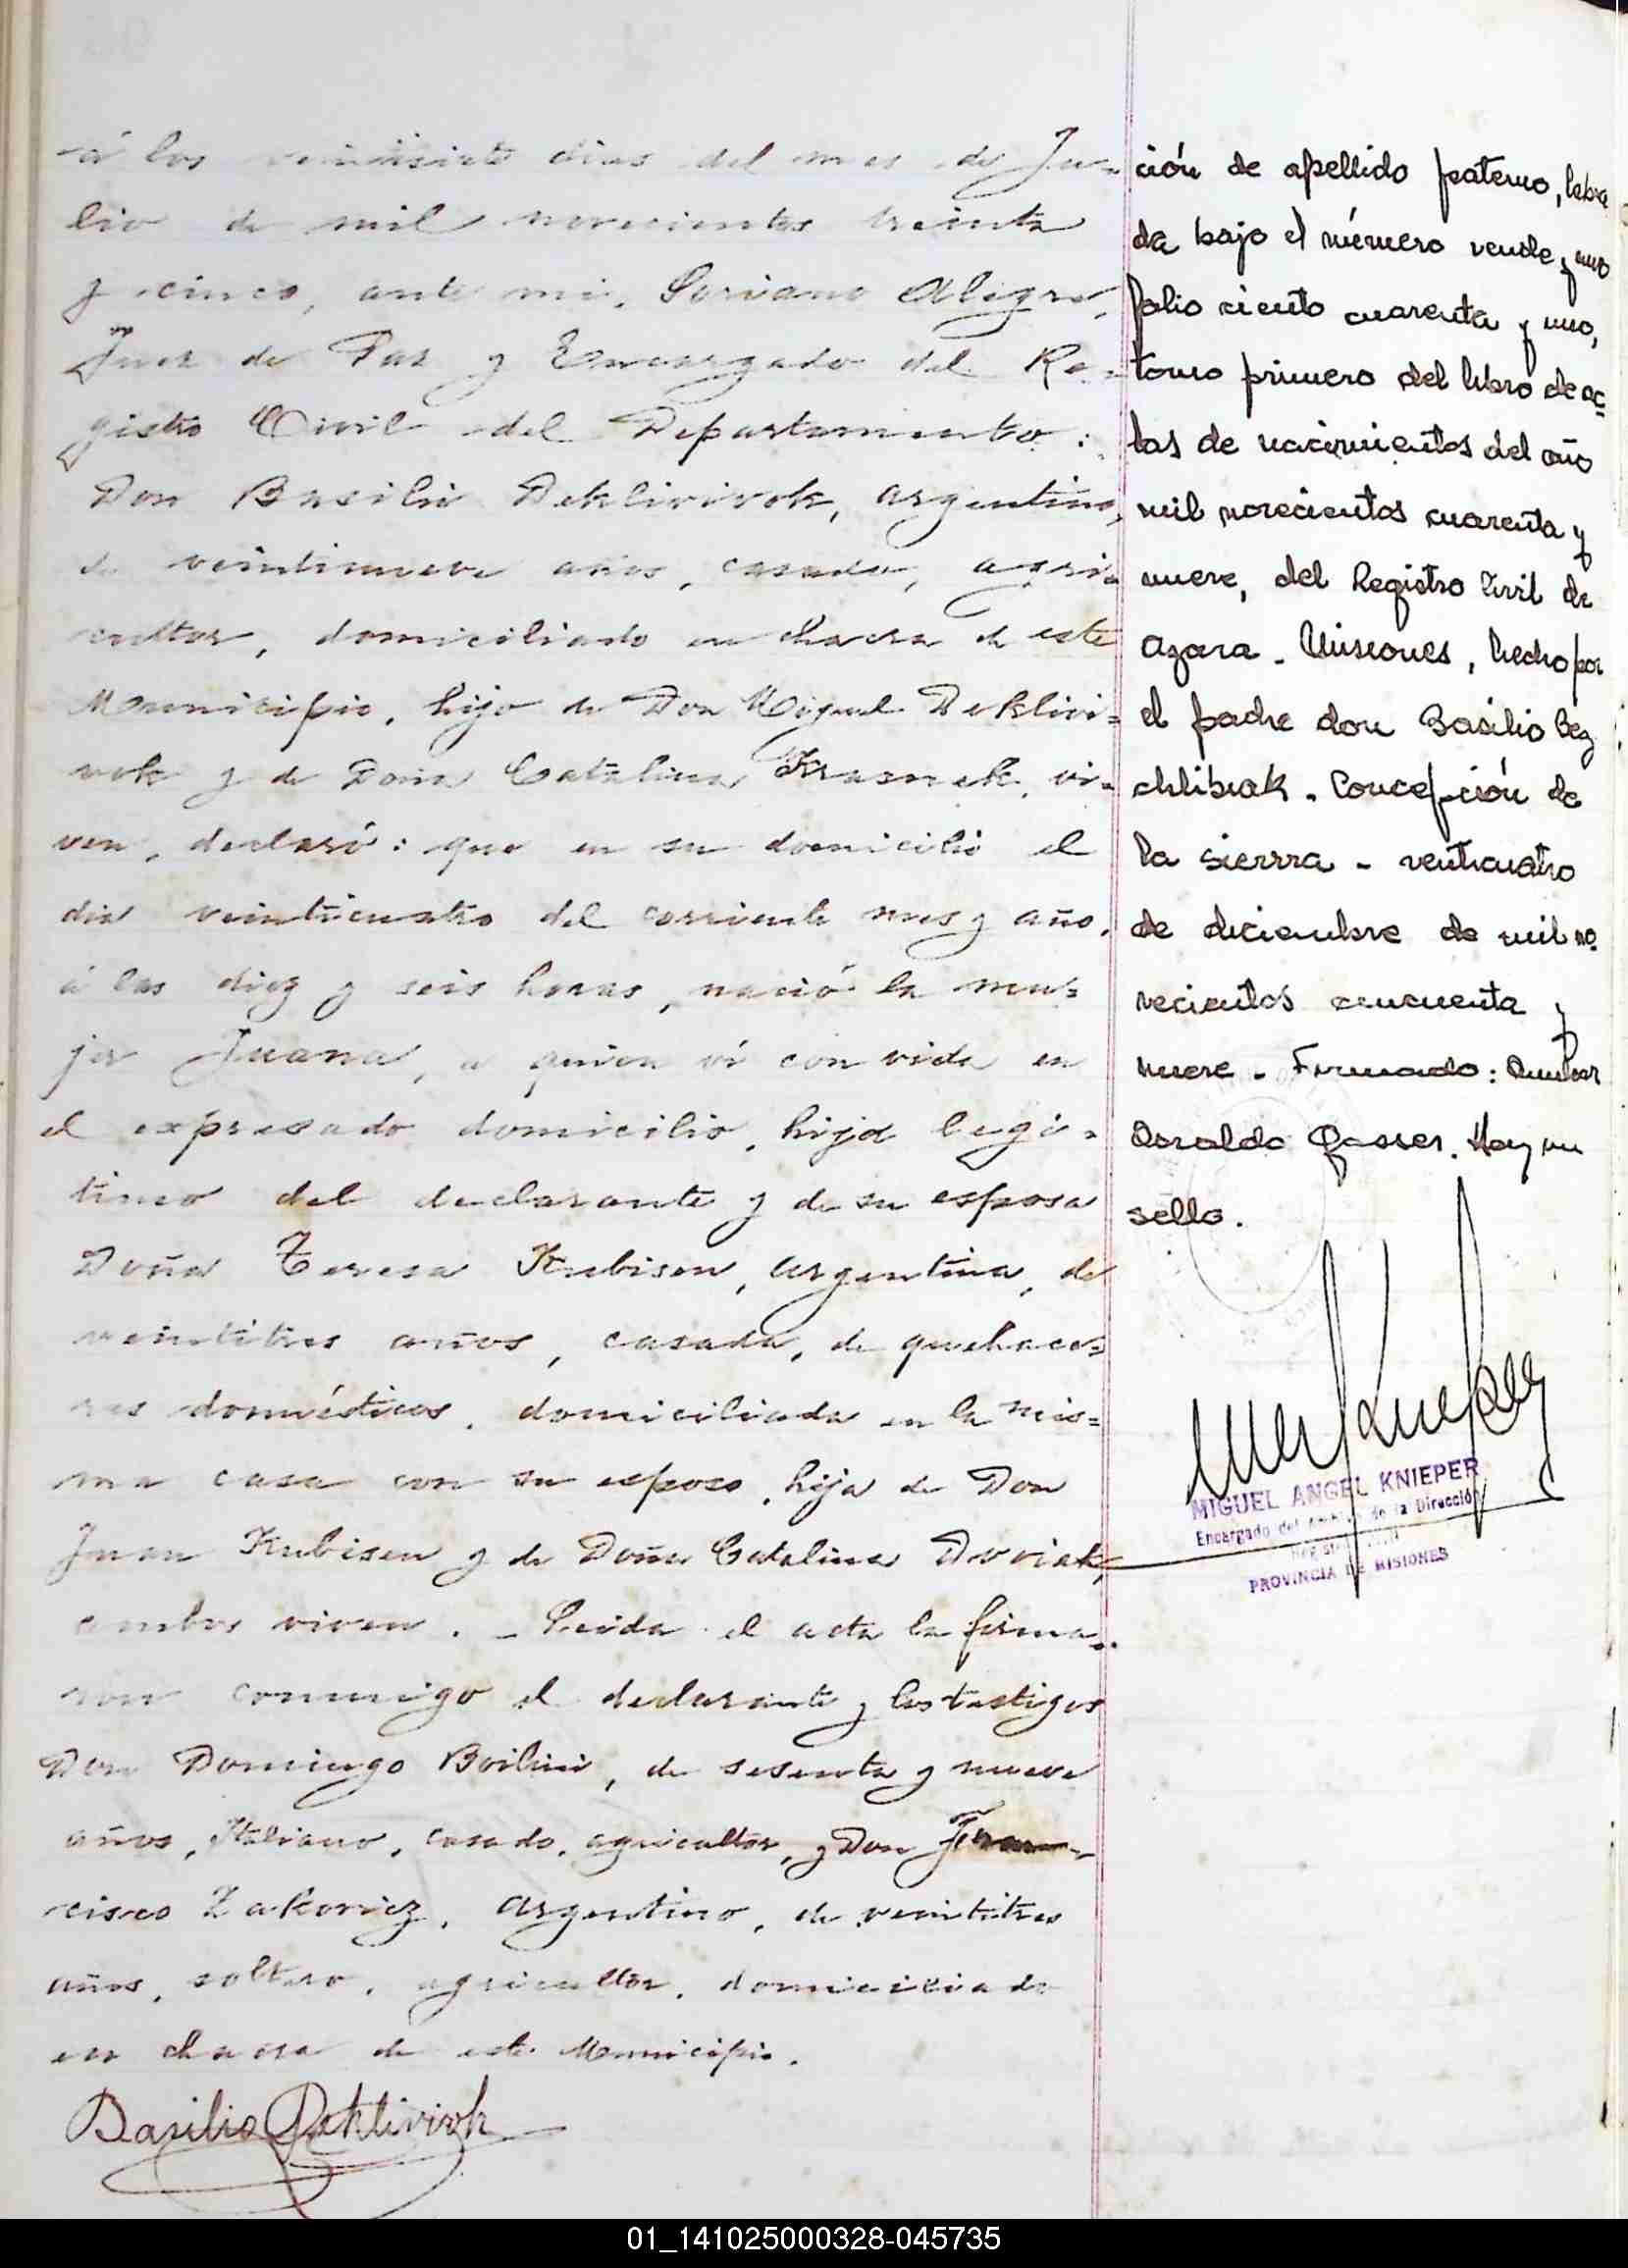 á los veintisiete dias del mes de Ju-
lio de mil novecientos treinta
y cinco, ante mi, Soriano Alegre,
Juez de Paz y Encargado del Re-
gistro Civil del Departamento:
Don Basilio Deklivivok, argentino,
de veintinueve años, casado, agri-
cultor, domiciliado en chacra de este
Municipio, hijo de Don Miguel Deklivi-
vok y de Doña Catalina Krasnek, vi-
ven, declaró: que en su domicilio el
dia veinticuatro del corriente mes y año,
á las diez y seis horas, nació la mu-
jer Juana, a quien ví con vida en
el expresado domicilio, hija legi-
tima del declarante y de su esposa
Doña Teresa Kubisen, argentina, de
veintitres años, casada, de quehace-
res domésticos, domiciliada en la mis-
ma casa con su esposo, hija de Don
Juan Kubisen y de Doña Catalina Dvoriak,
ambos viven. - Leida el acta la firma-
ron conmigo el declarante y los testigos
Don Domingo Boilini, de sesenta y nueve
años, Italiano, casado, agricultor, y Don Fran-
cisco Zakovicz, Argentino, de veintitres
años, soltero, agricultor, domiciliado
en chacra de este Municipio.
Basilio Deklivivok
ción de apellido paterno, labra
da bajo el número veinte y uno
folio ciento cuarenta y uno,
tomo primero del libro de ac-
tas de nacimientos del año
mil novecientos cuarenta y
nueve, del Registro Civil de
Azara - Misiones, hecho por
el padre don Basilio Bez
chlibiak - Concepción de
la sierra - venticuatro
de diciembre de mil no-
vecientos cincuenta y
nueve - Firmado:
Osvaldo Gasser. Hay un
sello.
MIGUEL ANGEL KNIEPER
Encargado del Archivo de la Dirección
Registro Civil
PROVINCIA DE MISIONES
01_141025000328-045735